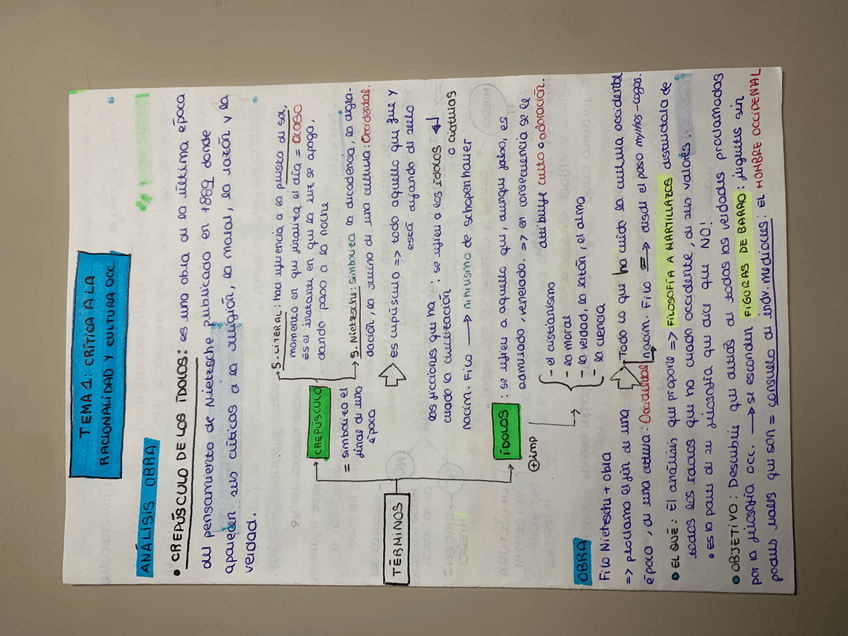 TEMA 1: CRÍTICA A LA
RACIONALIDAD Y CULTURA OCC.
ANÁLISIS OBRA
• CREPÚSCULO DE LOS ÍDOLOS: es una obra de la última época
del pensamiento de Nietzsche publicada en 1889 donde
aparecen sus críticas a la religión, la moral, la razón y la
verdad.
TÉRMINOS
CREPÚSCULO
= simboliza el
final de una
época
S. LITERAL: hace referencia a la puesta de sol,
momento en que finaliza el día = OCASO
es el instante en que la luz se apaga,
dando paso a la noche
S. Nietzsche: simboliza la decadencia, la degra-
dación, la ruina de una cultura: Occidental.
es crepúsculo => todo aquello que fue y
está dejando de serlo
las ficciones que ha : se refiere a los ÍDOLOS
creado la civilización o criaturas
nacim. Filo → nihilismo de Schopenhauer
ÍDOLOS : se refiere a aquello que, aunque falso, es
admirado, venerado. => en consecuencia se le
atribuye culto o adoración.
+imp
- el cristianismo
- la moral
- la verdad, la razón, el alma
- la ciencia
Todo lo que ha creído la cultura occidental
nacim. Filo => desde el paso mythos-logos.
OBRA
Filo Nietzsche + obra
=> proclama el fin de una
época, de una cultura: Occidental
• EL QUÉ: El análisis que propone => FILOSOFÍA A MARTILLAZOS destruidora de
todos los ídolos que ha creado occidente, de sus valores.
• es la base de su filosofía que dice que NO!
• OBJETIVO: Descubrir que detrás de todas las verdades proclamadas
por la filosofía occ. → se esconden FIGURAS DE BARRO: juguetes sin
poderes reales que son = consuelo de indv. mediocres: EL HOMBRE OCCIDENTAL